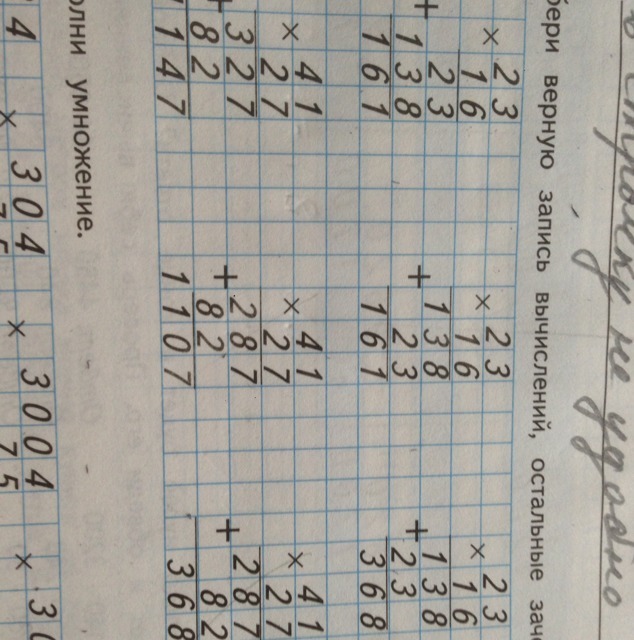 не удобно
бери верную запись вычислений, остальные зачё
× 23
16
+ 23
138
161
× 23
16
+ 138
23
161
× 23
16
+ 138
23
368
× 41
27
+ 327
82
1147
× 41
27
+ 287
82
1107
× 41
27
+ 287
82
368
олни умножение.
4
× 304
75
× 3004
75
×